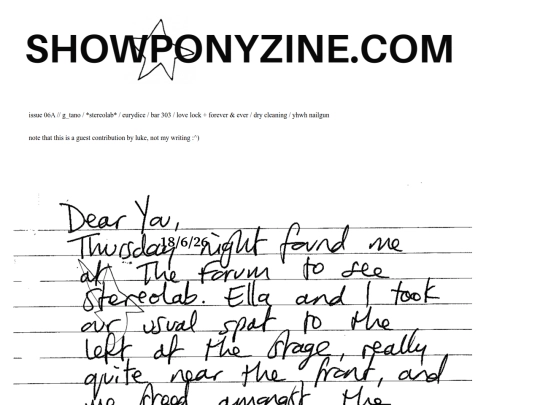 SHOWPONYZINE.COM
issue 06A // g_tano / *stereolab* / eurydice / bar 303 / love lock + forever & ever / dry cleaning / yhwh nailgun
note that this is a guest contribution by luke, not my writing :^)
Dear You,
Thursday 18/6/26 night found me
at The Forum to see
Stereolab. Ella and I took
our usual spot to the
left of the stage, really
quite near the front, and
we stood amongst the